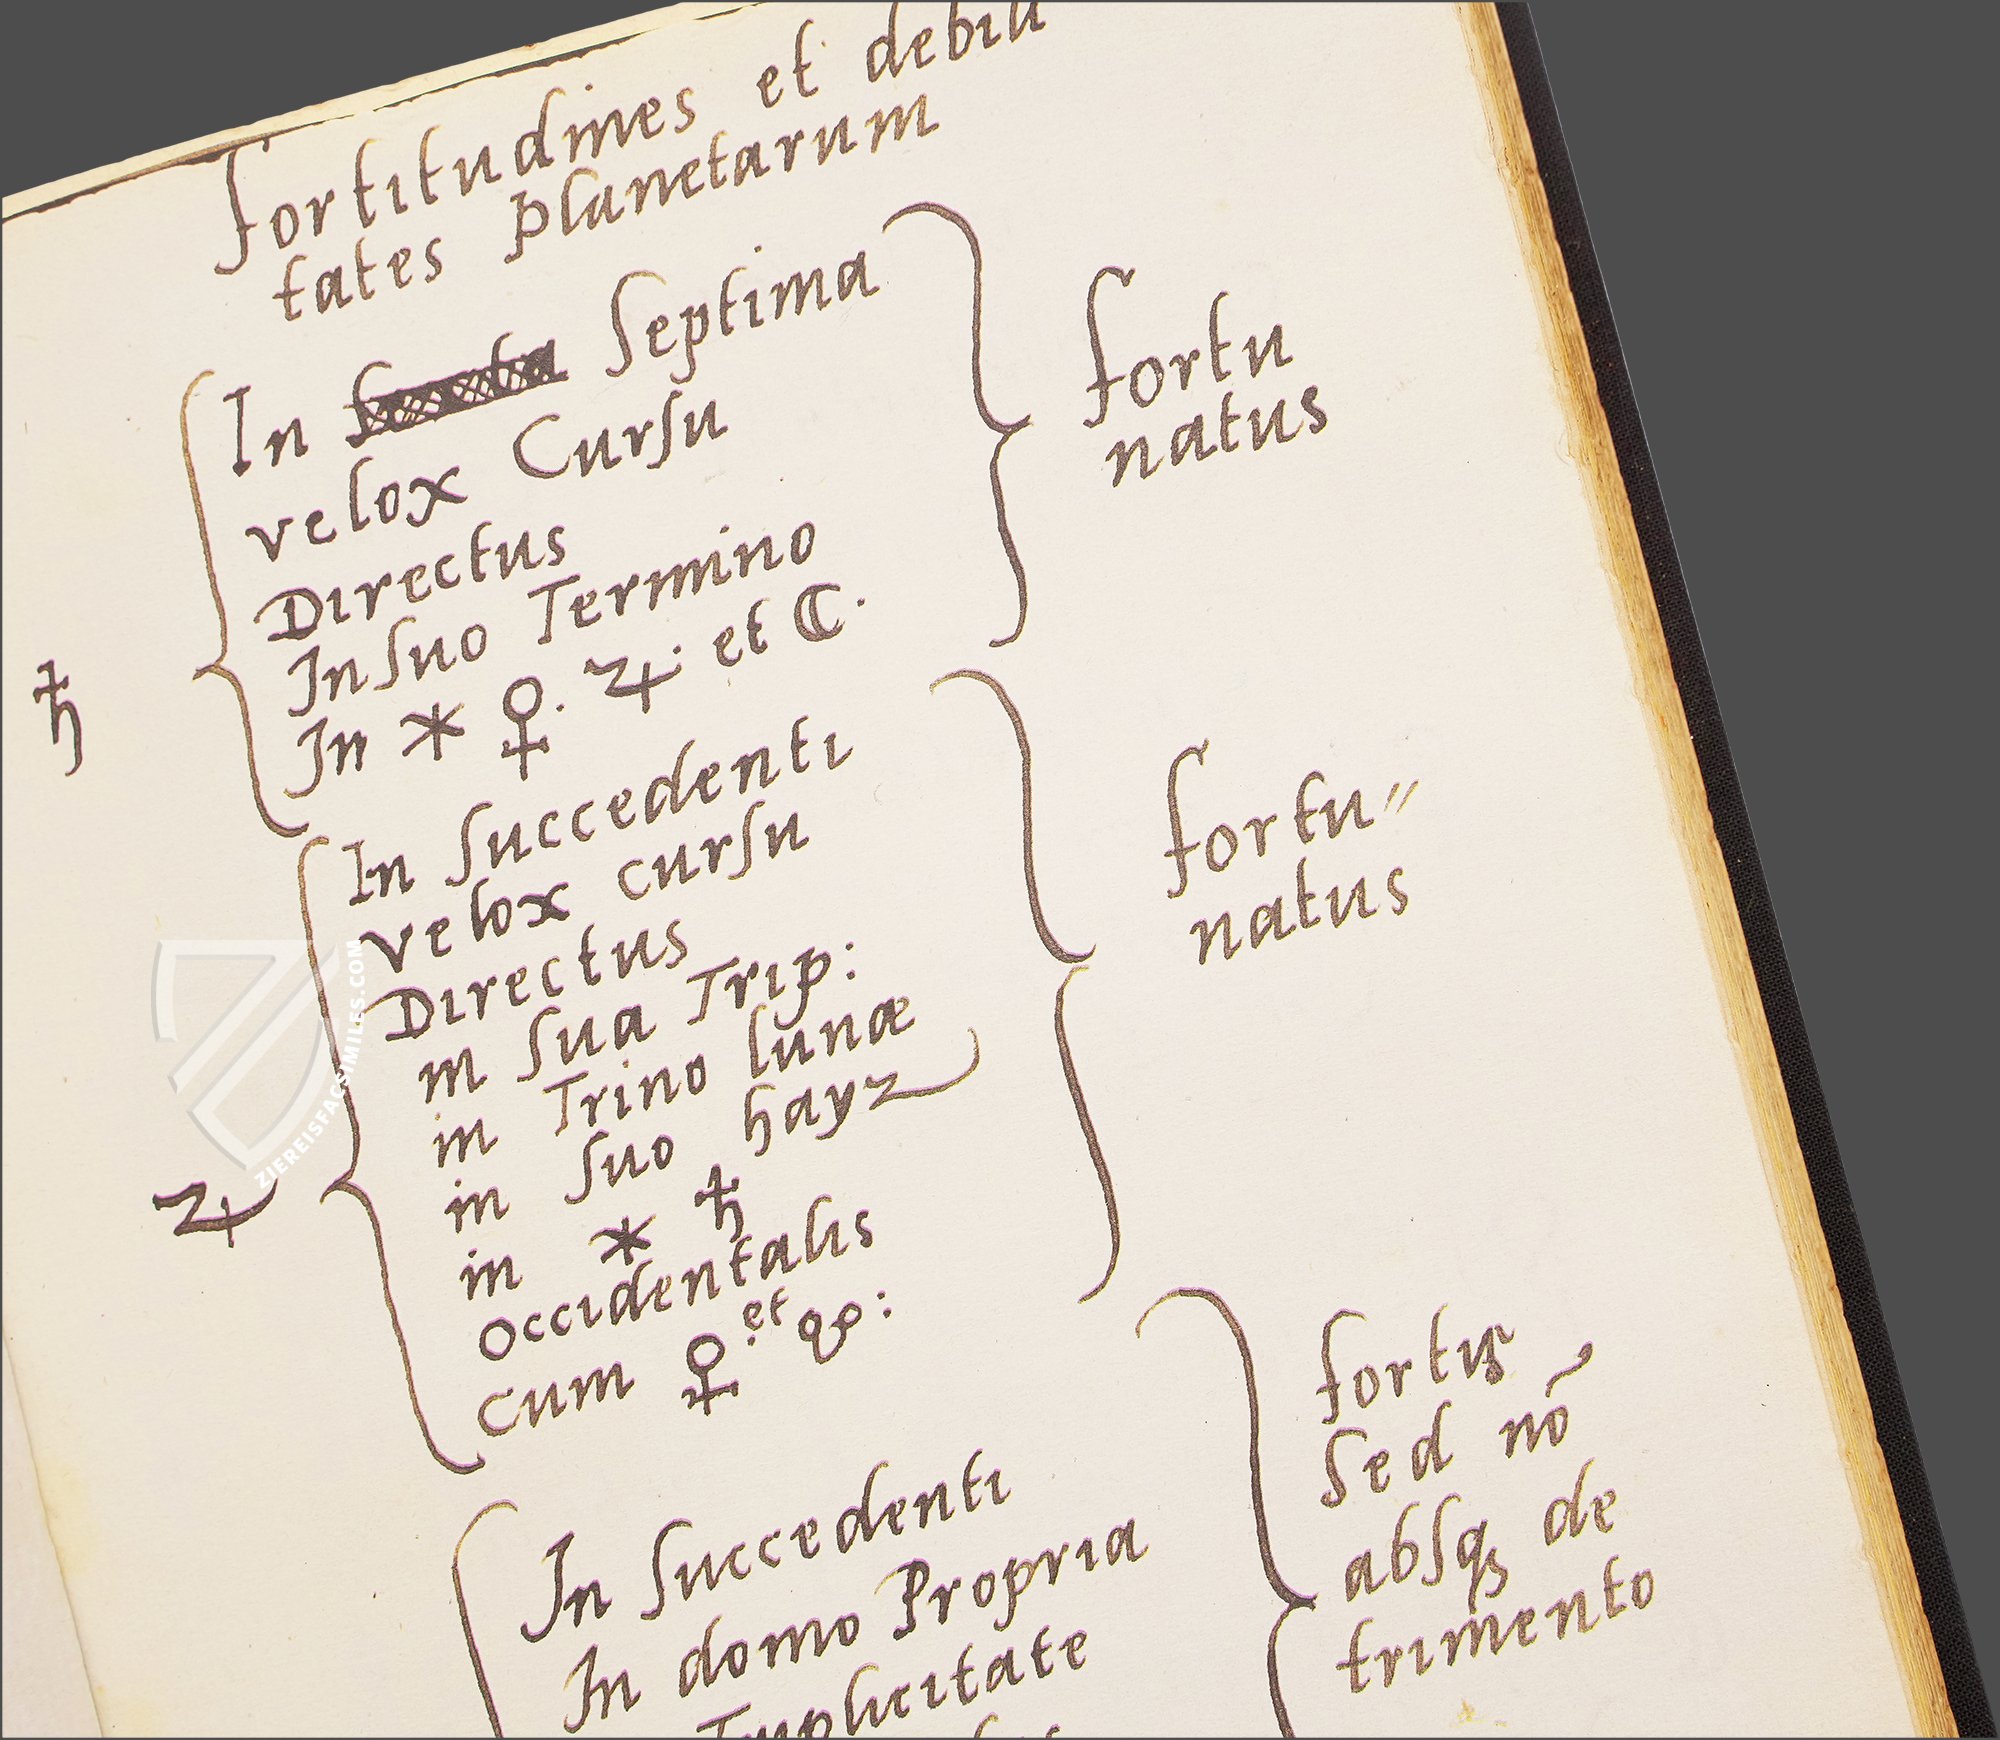 Fortitudines et debili
tates planetarum
In Septima
velox Cursu
Directus
In suo Termino
In ⚹ ♀. ♃: et ☾.
♄
fortu
natus
In succedenti
velox cursu
Directus
in sua Trip:
in Trino lunæ
in suo hayz
in ⚹ ♄
occidentalis
cum ♀ et ☋:
♃
fortu〃
natus
In succedenti
In domo Propria
Triplicitate
fortis
sed nō
absqꝫ de
trimento
ZIEREISFACSIMILES.COM